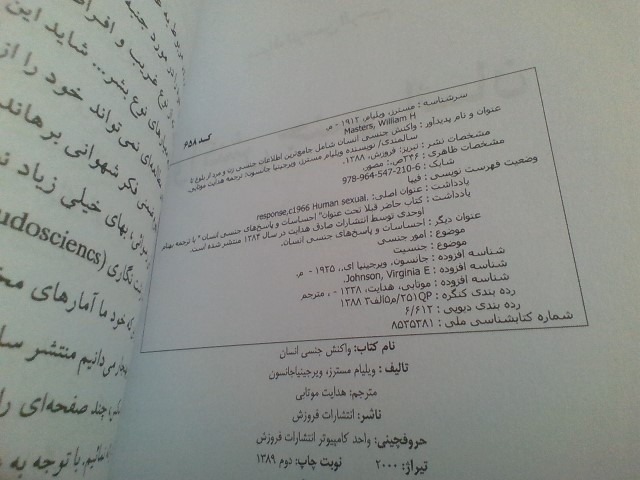 کسد ۶۵۸
سرشناسه : مسترز، ویلیام، ۱۹۱۲ - م.
Masters, William H
عنوان و نام پدیدآور : واکنش جنسی انسان شامل جامع‌ترین اطلاعات جنسی زن و مرد از بلوغ تا
سالمندی/ نویسنده ویلیام مسترز، ویرجینیا جانسون؛ ترجمه هدایت موتابی.
مشخصات نشر : تبریز: فروزش، ۱۳۸۸.
مشخصات ظاهری : ۳۴۶ص.: مصور.
شابک : 978-964-547-210-6
وضعیت فهرست نویسی : فیپا
یادداشت : عنوان اصلی: Human sexual response,c1966.
یادداشت : کتاب حاضر قبلا تحت عنوان" احساسات و پاسخ‌های جنسی انسان" با ترجمه بهنام
اوحدی توسط انتشارات صادق هدایت در سال ۱۳۸۴ منتشر شده است.
عنوان دیگر : احساسات و پاسخ‌های جنسی انسان.
موضوع : امور جنسی
موضوع : جنسیت
شناسه افزوده : جانسون، ویرجینیا ای.، ۱۹۲۵ - م.
Johnson, Virginia E.
شناسه افزوده : موتابی، هدایت، ۱۳۳۸ - ، مترجم
رده بندی کنگره : QP۲۵۱/م۵الف۲ ۱۳۸۸
رده بندی دیویی : ۶۱۲/۶
شماره کتابشناسی ملی : ۸۵۲۵۳۸۱
نام کتاب: واکنش جنسی انسان
تالیف : ویلیام مسترز، ویرجینیاجانسون
مترجم: هدایت موتابی
ناشر: انتشارات فروزش
حروفچینی: واحد کامپیوتر انتشارات فروزش
تیراژ: ۲۰۰۰ نوبت چاپ: دوم ۱۳۸۹
نوع غریب و افراد
نوع بشر... شاید این
نمی‌تواند خود را از
ذکر شهوانی برهاند
بهای خیلی زیاد
نگاری (udosciencs
که خود ما آمارهای
می‌دانیم منتشر
چند صفحه‌ای را
با توجه به